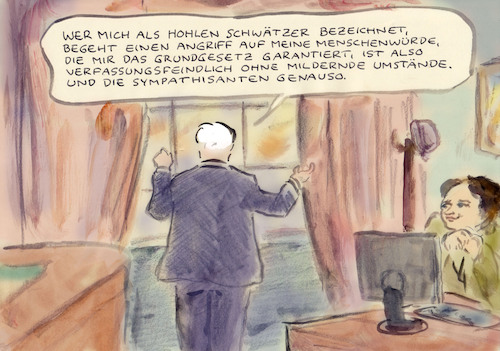 WER MICH ALS HOHLEN SCHWÄTZER BEZEICHNET,
BEGEHT EINEN ANGRIFF AUF MEINE MENSCHENWÜRDE,
DIE MIR DAS GRUNDGESETZ GARANTIERT, IST ALSO
VERFASSUNGSFEINDLICH OHNE MILDERNDE UMSTÄNDE.
UND DIE SYMPATHISANTEN GENAUSO.